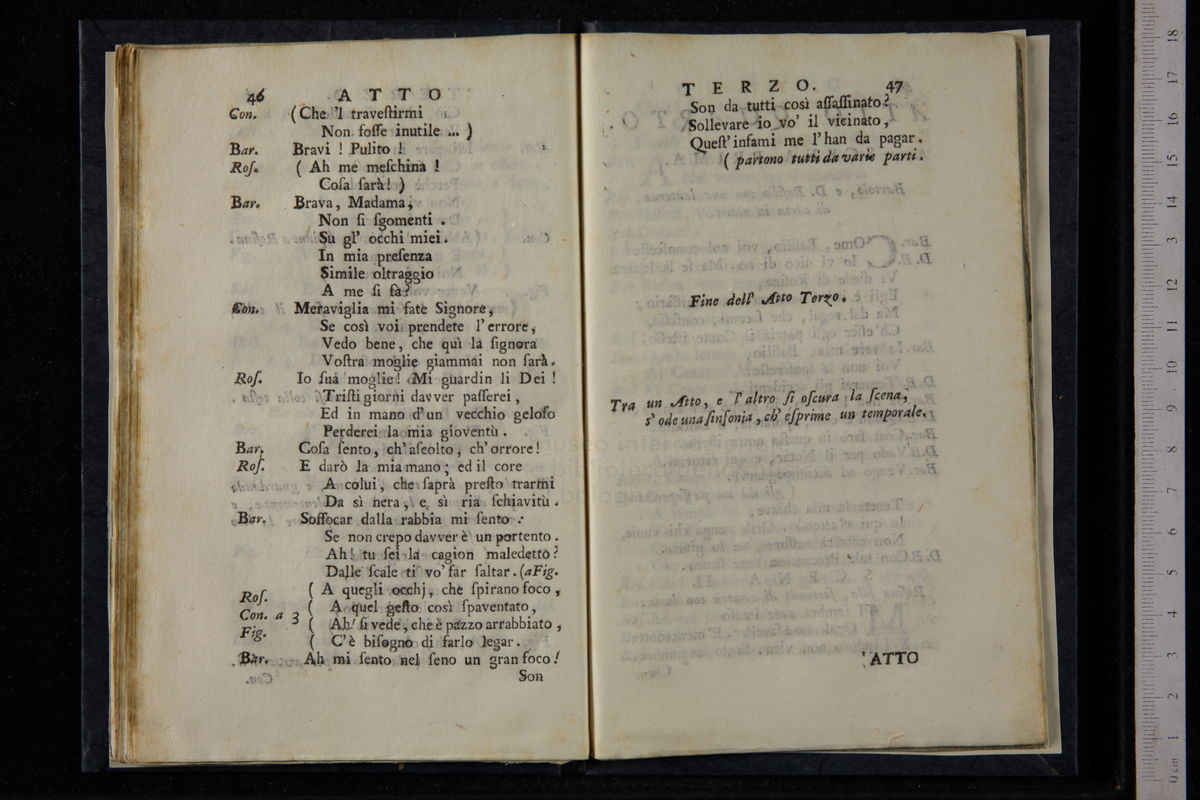 46 ATTO
Con. (Che 'l traveſtirmi
Non foſſe inutile ... )
Bar. Bravi ! Pulito !
Roſ. ( Ah me meſchina !
Coſa ſarà! )
Bar. Brava, Madama,
Non ſi ſgomenti .
Su gl' occhi miei.
In mia preſenza
Simile oltraggio
A me ſi fa?
Con. Meraviglia mi fate Signore,
Se così voi prendete l'errore,
Vedo bene, che quì la ſignora
Voſtra moglie giammai non ſarà.
Roſ. Io ſua moglie! Mi guardin li Dei !
Triſti giorni davver paſſerei,
Ed in mano d'un vecchio geloſo
Perderei la mia gioventù.
Bar. Coſa ſento, ch'aſcolto, ch'orrore!
Roſ. E darò la mia mano; ed il core
A colui, che ſaprà preſto trarmi
Da sì nera, e sì ria ſchiavitù.
Bar. Soffocar dalla rabbia mi ſento :
Se non crepo davver è un portento.
Ah! tu ſei la cagion maledetto?
Dalle ſcale ti vo' far ſaltar. (a Fig.
Roſ. ( A quegli occhj, che ſpirano foco,
Con. a 3 ( A quel geſto così ſpaventato,
( Ah! ſi vede, che è pazzo arrabbiato,
Fig. ( C'è biſogno di farlo legar.
Bar. Ah mi ſento nel ſeno un gran foco!
Son
TERZO. 47
Son da tutti così aſſaſſinato?
Sollevare io vo' il vicinato,
Queſt' infami me l'han da pagar.
( partono tutti da varie parti.
Fine dell' Atto Terzo.
Tra un Atto, e l' altro ſi oſcura la ſcena,
s' ode una ſinfonia, ch' eſprime un temporale.
ATTO
0 cm 1 2 3 4 5 6 7 8 9 10 11 12 13 14 15 16 17 18